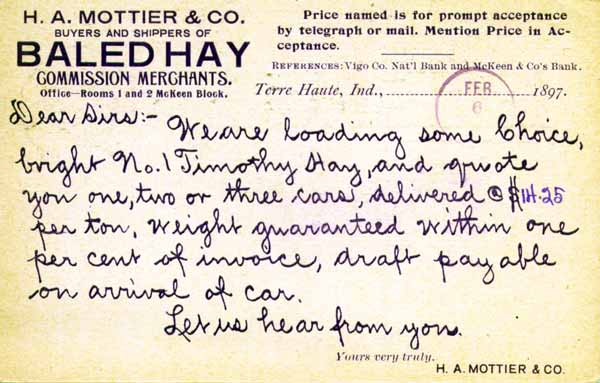 H. A. MOTTIER & CO.
BUYERS AND SHIPPERS OF
BALED HAY
COMMISSION MERCHANTS.
Office—Rooms 1 and 2 McKeen Block.
Price named is for prompt acceptance
by telegraph or mail. Mention Price in Ac-
ceptance.
REFERENCES: Vigo Co. Nat'l Bank and McKeen & Co's Bank.
Terre Haute, Ind., FEB 6 1897.
Dear Sirs:-
We are loading some Choice,
bright No. 1 Timothy Hay, and quote
you one, two or three cars, delivered @ $14.25
per ton, weight guaranteed within one
per cent of invoice, draft payable
on arrival of car.
Let us hear from you.
Yours very truly,
H. A. MOTTIER & CO.